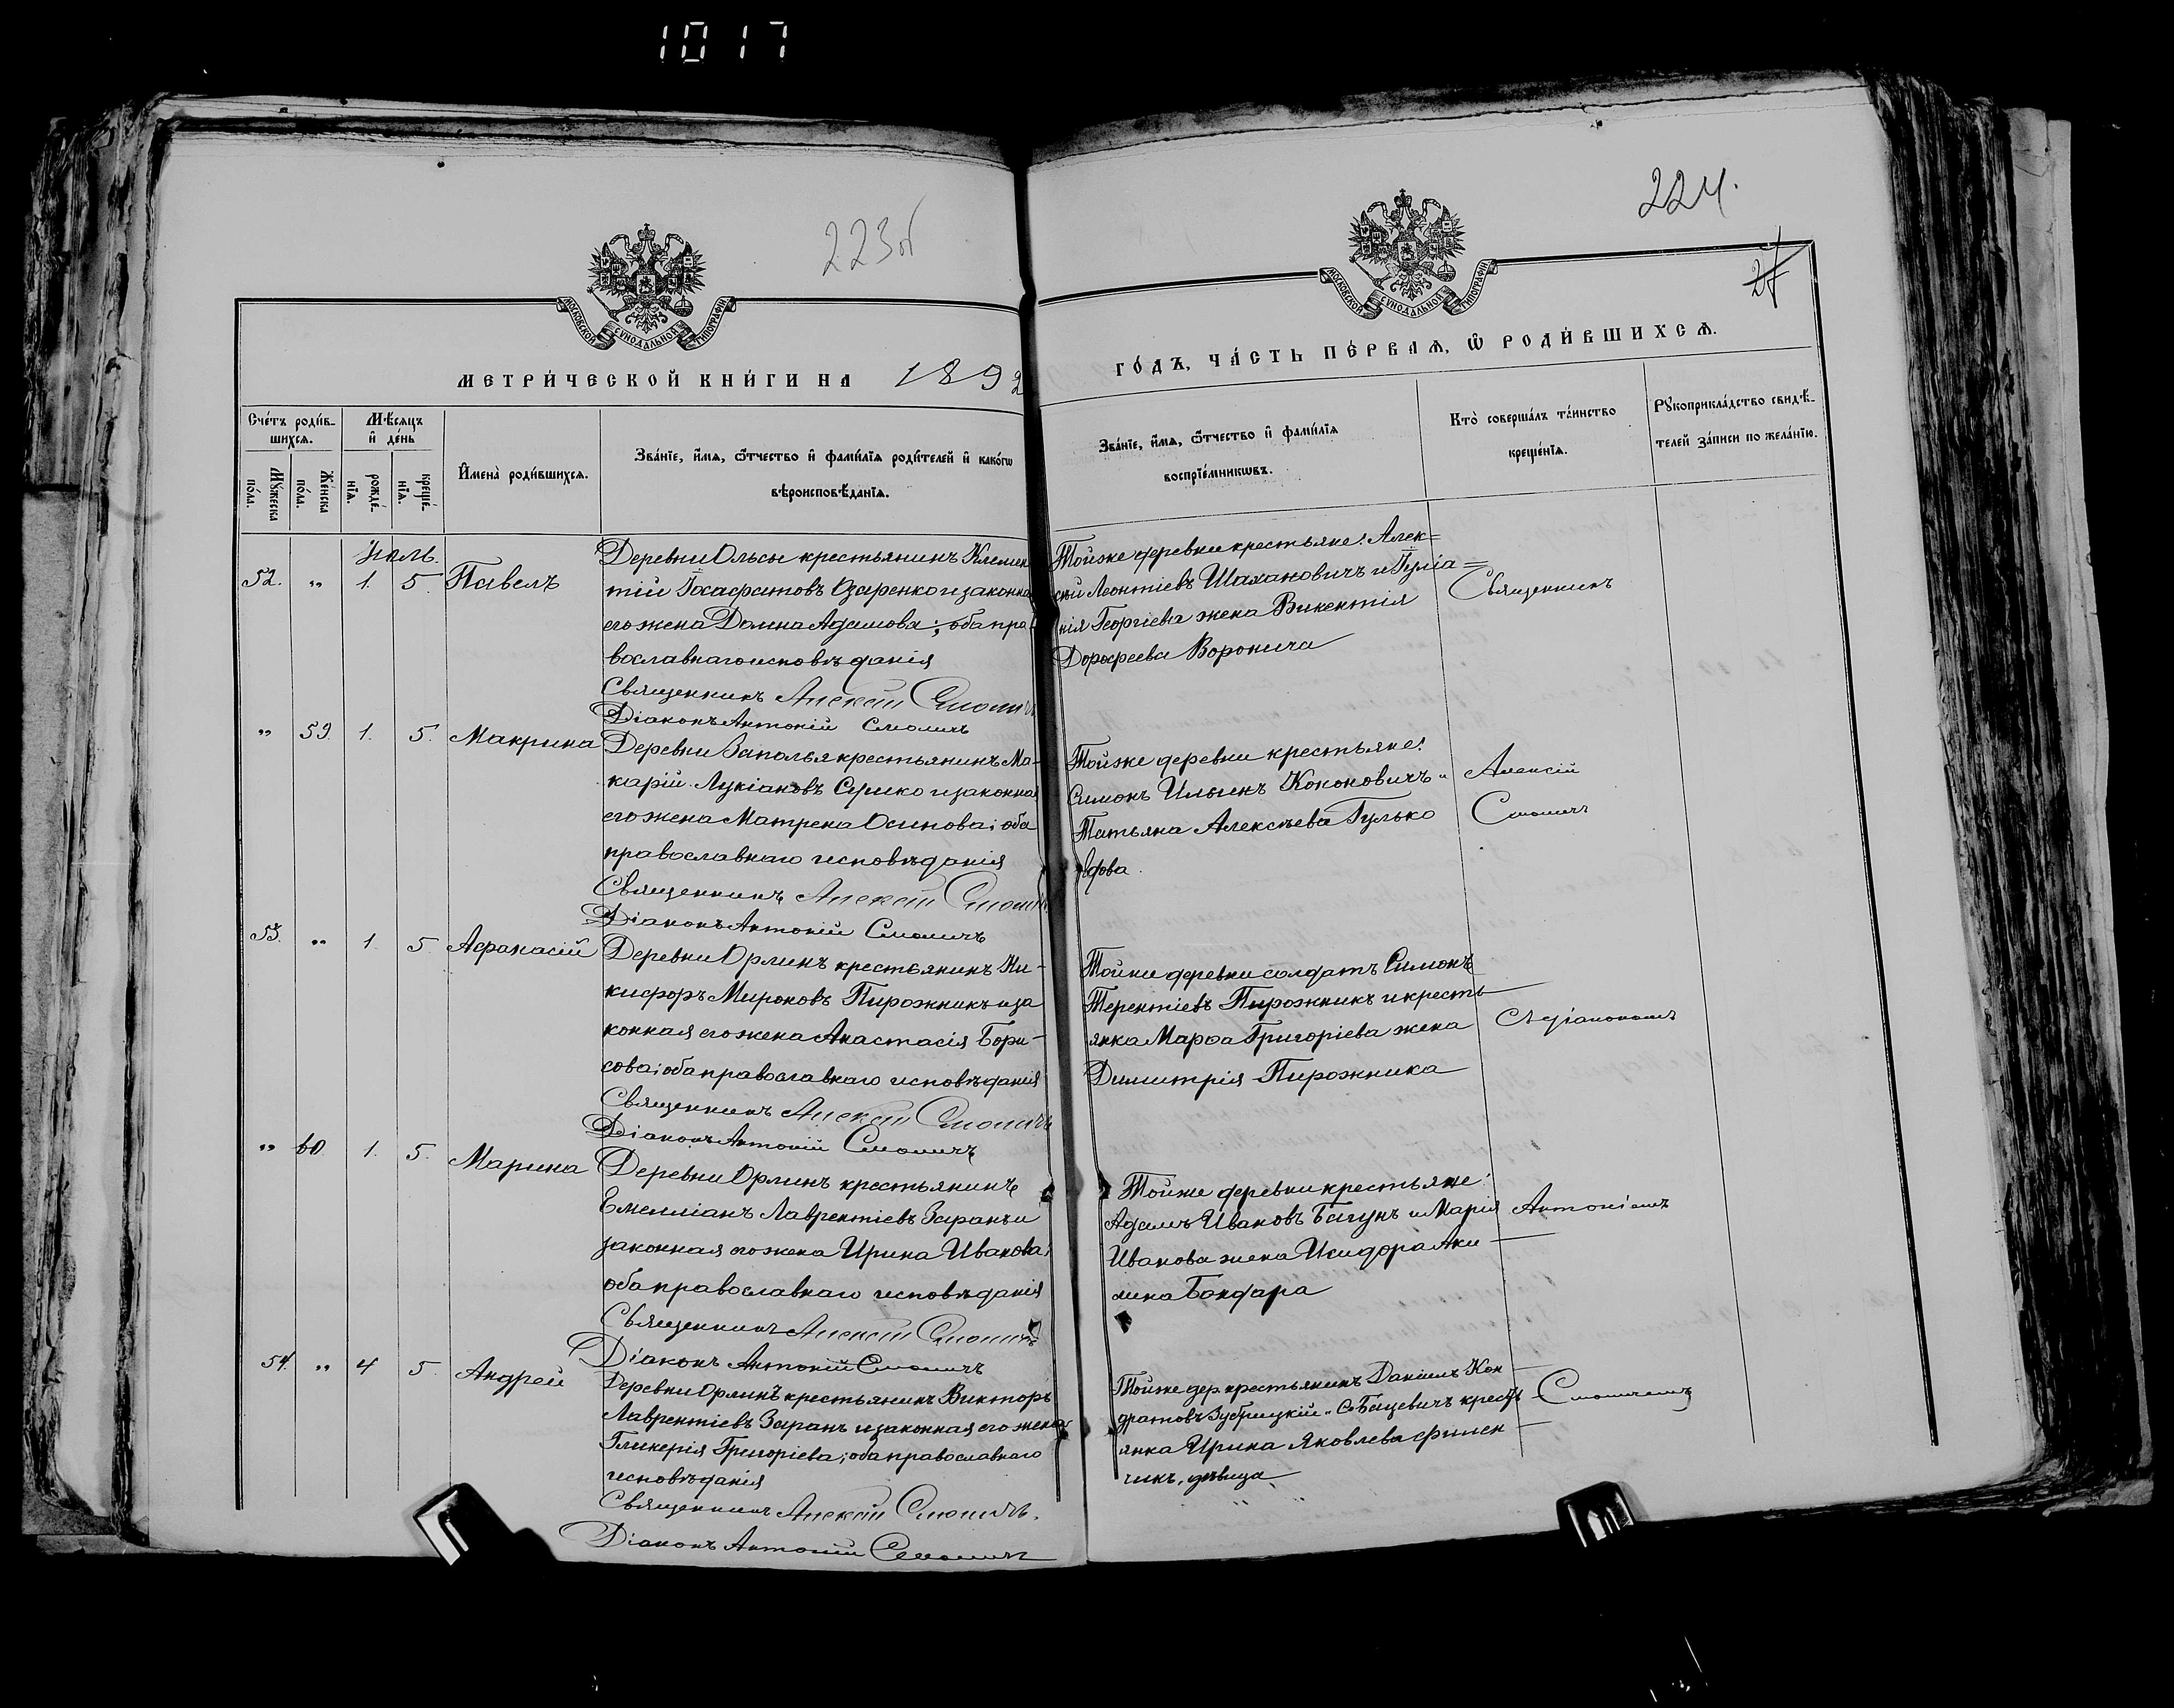 1017
223об
224.
27
МОСКОВСКОЙ СѴНОДАЛЬНОЙ ТИПОГРАФІИ
МОСКОВСКОЙ СѴНОДАЛЬНОЙ ТИПОГРАФІИ
МЕТРИ́ЧЕСКОЙ КНИ́ГИ НА 1892
ГО́ДЪ, ЧА́СТЬ ПЕ́РВАѦ, Ѽ РОДИ́ВШИХСѦ.
Сче́тъ роди́в-
шихсѧ.
Мꙋ́жеска по́ла.
Же́нска по́ла.
Мѣ́сѧцъ и҆ де́нь
рожде́-нїѧ.
креще́-нїѧ.
И҆мена̀ роди́вшихсѧ.
Зва́нїе, и҆́мѧ, ѻ҆́тчество и҆ фами́лїѧ роди́телей и҆ како́гѡ
вѣроисповѣ́данїѧ.
Зва́нїе, и҆́мѧ, ѻ҆́тчество и҆ фами́лїѧ
воспрїе́мникѡвъ.
Кто̀ соверша́лъ та́инство
креще́нїѧ.
Рꙋкоприкла́дство свидѣ́-
телей за́писи по жела́нїю.
Іюль.
52. " 1. 5. Павелъ
Деревни Ольсы крестьянинъ Климен
тій Іосафатовъ Озаренко и законна
его жена Домна Адамова; оба пра
вославнаго исповѣданія
Священникъ Алексій Смоличъ
Діаконъ Антоній Смоличъ
Тойже деревни крестьяне: Алек=
сѣй Леонтіевъ Шаханович и Іуліа=
нія Георгіева жена Викентія
Дорофеева Воронича
Священникъ
" 59. 1. 5. Макрина
Деревни Заполья крестьянинъ Ма-
карій Лукіановъ Сушко и законная
его жена Матрена Осипова; оба
православнаго исповѣданія
Священникъ Алексій Смоличъ
Діаконъ Антоній Смоличъ
Тойже деревни крестьяне:
Симонъ Ильинъ Кононовичъ и
Татьяна Алексѣева Гулько
вдова.
Алексій
Смоличъ
53. " 1. 5. Афанасій
Деревни Орлинъ крестьянинъ Ни-
кифоръ Мироновъ Пирожникъ и за
конная его жена Анастасія Бори-
сова; оба православнаго исповѣданія
Священникъ Алексій Смоличъ
Діаконъ Антоній Смоличъ
Тойже деревни солдатъ Симонъ
Терентіевъ Пирожникъ и кресть
янка Марѳа Григоріева жена
Димитрія Пирожника
Съ діакономъ
" 60. 1. 5. Марина
Деревни Орлинъ крестьянинъ
Емеліанъ Лаврентіевъ Заранъ и
законная его жена Ирина Иванова;
оба православнаго исповѣданія
Священникъ Алексій Смоличъ
Діаконъ Антоній Смоличъ
Тойже деревни крестьяне:
Адамъ Ивановъ Багунъ и Марія
Иванова жена Исидора Аки
лина Бондара
Антоніемъ
54. " 4 5. Андрей
Деревни Орлинъ крестьянинъ Викторъ
Лаврентіевъ Заранъ и законная его жена
Гликерія Григоріева; оба православнаго
исповѣданія
Священникъ Алексій Смоличъ.
Діаконъ Антоній Смоличъ
Тойже дер. крестьянинъ Даніилъ Кон
дратовъ Зубрицкій и кресть
янка Ирина Яковлева Филен
чикъ, дѣвица
Смоличемъ